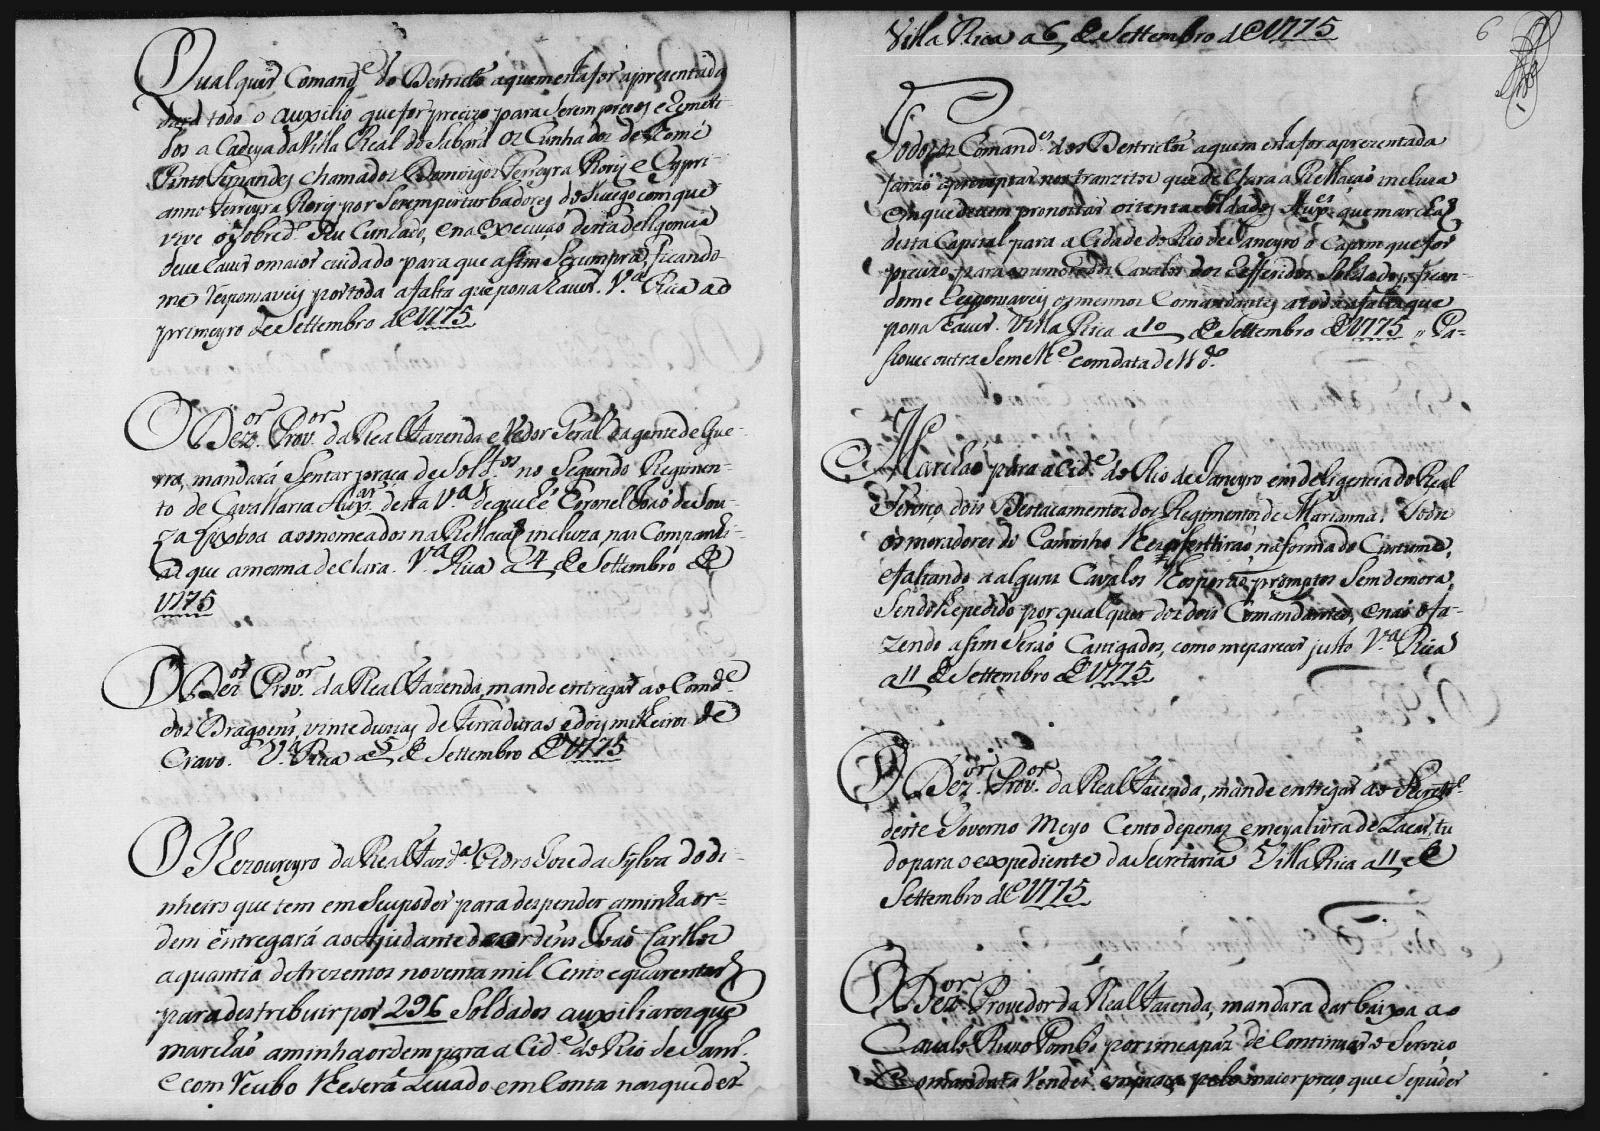 Qualquer Comand.e do Destricto aquem esta for aprezentada
dará todo o auxilio que for precizo para serem prezos, e remeti-
dos a Cadeya da Villa Real do Sabará os Cunhados de Thomé
Pinto Fernandes chamados Domingos Ferreyra Flores e Cypri-
anno Ferreyra Flores por serem perturbadores do Socego com que
vive o sobred.o seu Cunhado, e na execução desta deligencia
deve haver o maior cuidado para que asim se cumpra, ficando-
me responsaveis por toda a falta que possa haver. V.a Rica ao
primeyro de Settembro de 1775

O Dez.or Prov.or da Real Fazenda e Vedor Geral da gente de Gue-
rra, mandará sentar praça de Sold.os no Segundo Regimen-
to de Cavallaria Aux.ar desta V.a de que hé Coronel João de Sou-
za Lisboa aos nomeados na Rellação incluza, nas Companhi-
as que a mesma declara. V.a Rica a 4 de Settembro de
1775

O Dez.or Prov.or da Real Fazenda, mande entregar ao Comd.e
dos Dragoens, vinte duzias de Ferraduras, e dois milheiros de
Cravo. V.a Rica a 5 de Settembro de 1775

O Thezoureyro da Real Faz.da Pedro Joze da Sylva do di-
nheiro que tem em seu poder para despender a minha or-
dem entregará ao Ajudante de ordens João Carllos
a quantia de trezentos noventa mil Cento e quarenta r.s
para destribuir por 296 Soldados auxiliares que
marchão a minha ordem para a Cid.e do Rio de Jan.ro
e com recibo lhe será Levado em Conta nas que der

Villa Rica a 6 de Settembro de 1775
6

Todos os Comand.es dos Destrictos aquem esta for aprezentada
farão apromptar nos tranzitos que declara a Rellação incluza
em que devem pernoitar oitenta soldados Aux.es que marchão
desta Capital para a Cidade do Rio de Janeyro o Capim que for
precizo para o numero dos Cavalos dos refferidos Soldados, fican-
dome responsaveis os mesmos Comandantes a toda a falta que
possa haver. Villa Rica a 10 de Settembro de 1775 " Pa-
souse outra Seme.lhe com data de 11 d.o

Marchão para a Cid.e do Rio de Janeyro em deligencia do Real
Serviço dois Destacamentos dos Regimentos de Marianna. Todos
os moradores do Caminho lhes asistirão na forma do Custume,
e faltando a alguns Cavalos lhos porão promptos Sem demora,
Sendolhe pedido por qualquer dos dois Comandantes, e não o fa-
zendo asim Serão Castigados, como me parecer justo V.a Rica
a 11 de Settembro de 1775

O Dez.or Prov.or da Real Fazenda, mande entregar ao Secret.o
deste Governo Meyo Cento de penas e meya livra de Lacar, tu
do para o expediente da Secretaria Villa Rica a 11 de
Settembro de 1775

O Dez.or Provedor da Real Fazenda, mandara dar baixa ao
Cavalo Russo Pombo por incapaz de Continuar o Serviço
e o mandará Vender em praça pelo maior preço, que se puder